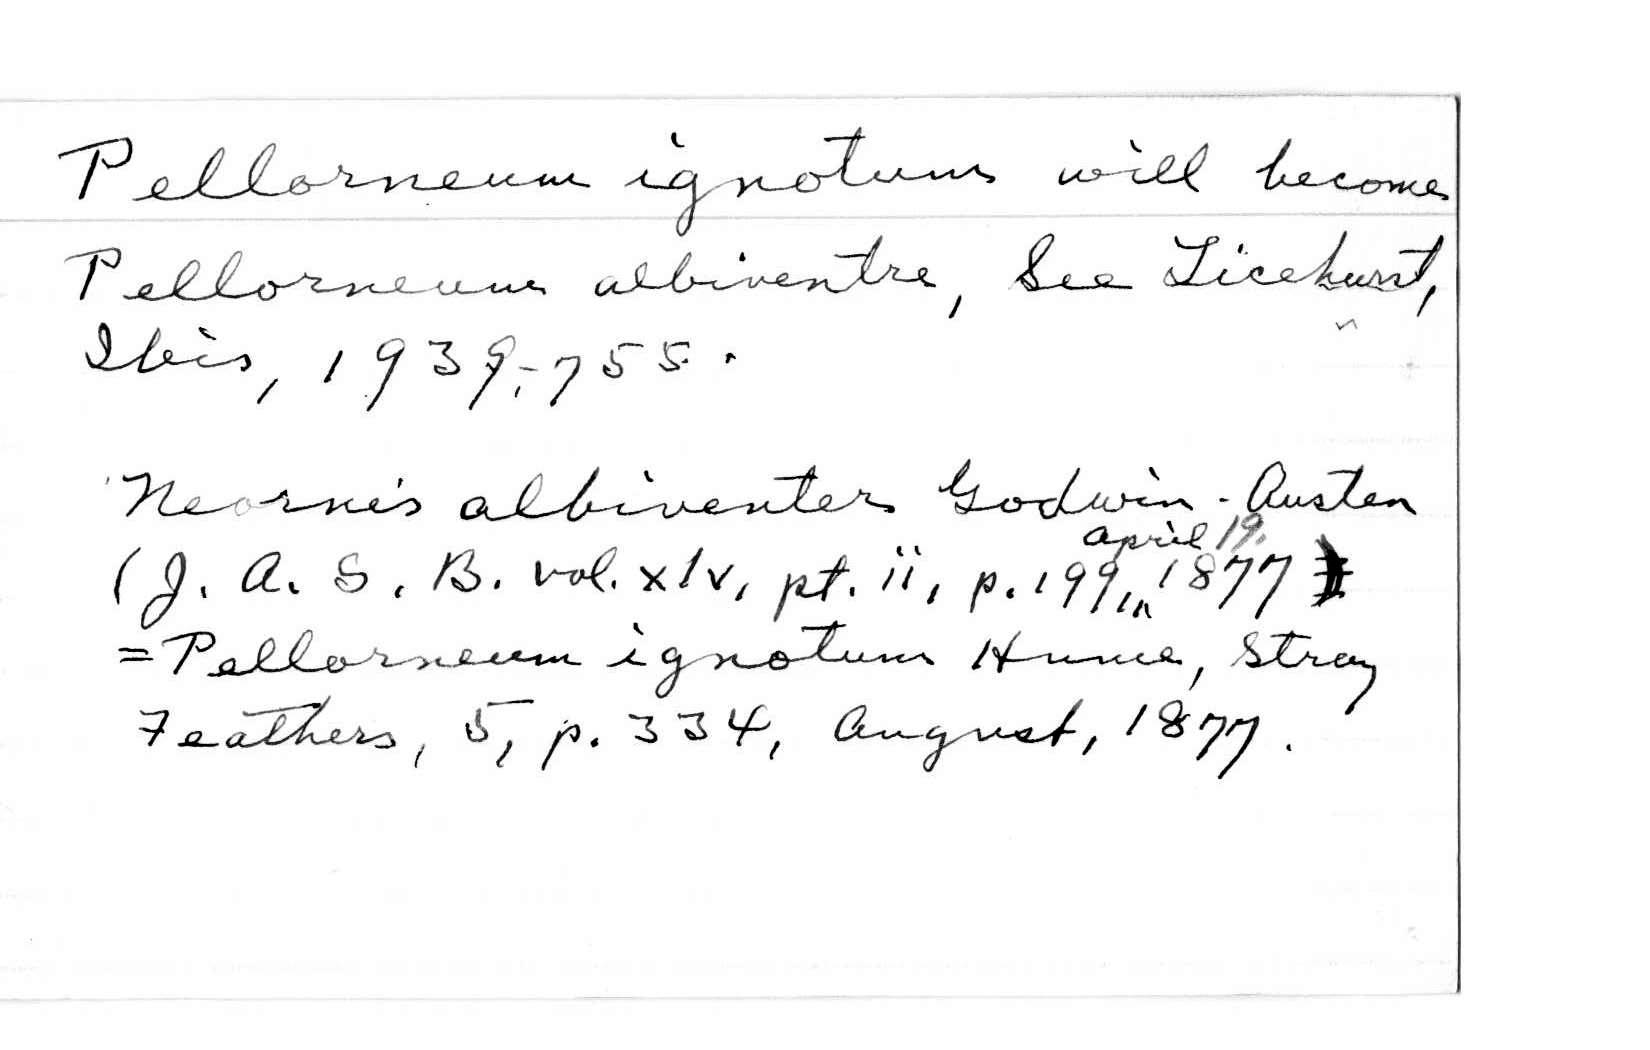 Pellorneum ignotum will become
Pellorneum albiventre, See Ticehurst,
Ibis, 1939,-755.
Neornis albiventer Godwin-Austen
(J. A. S. B. vol. xlv, pt. ii, p. 199, April 19. 1877)
=Pellorneum ignotum Hume, Stray
Feathers, 5, p. 334, August, 1877.